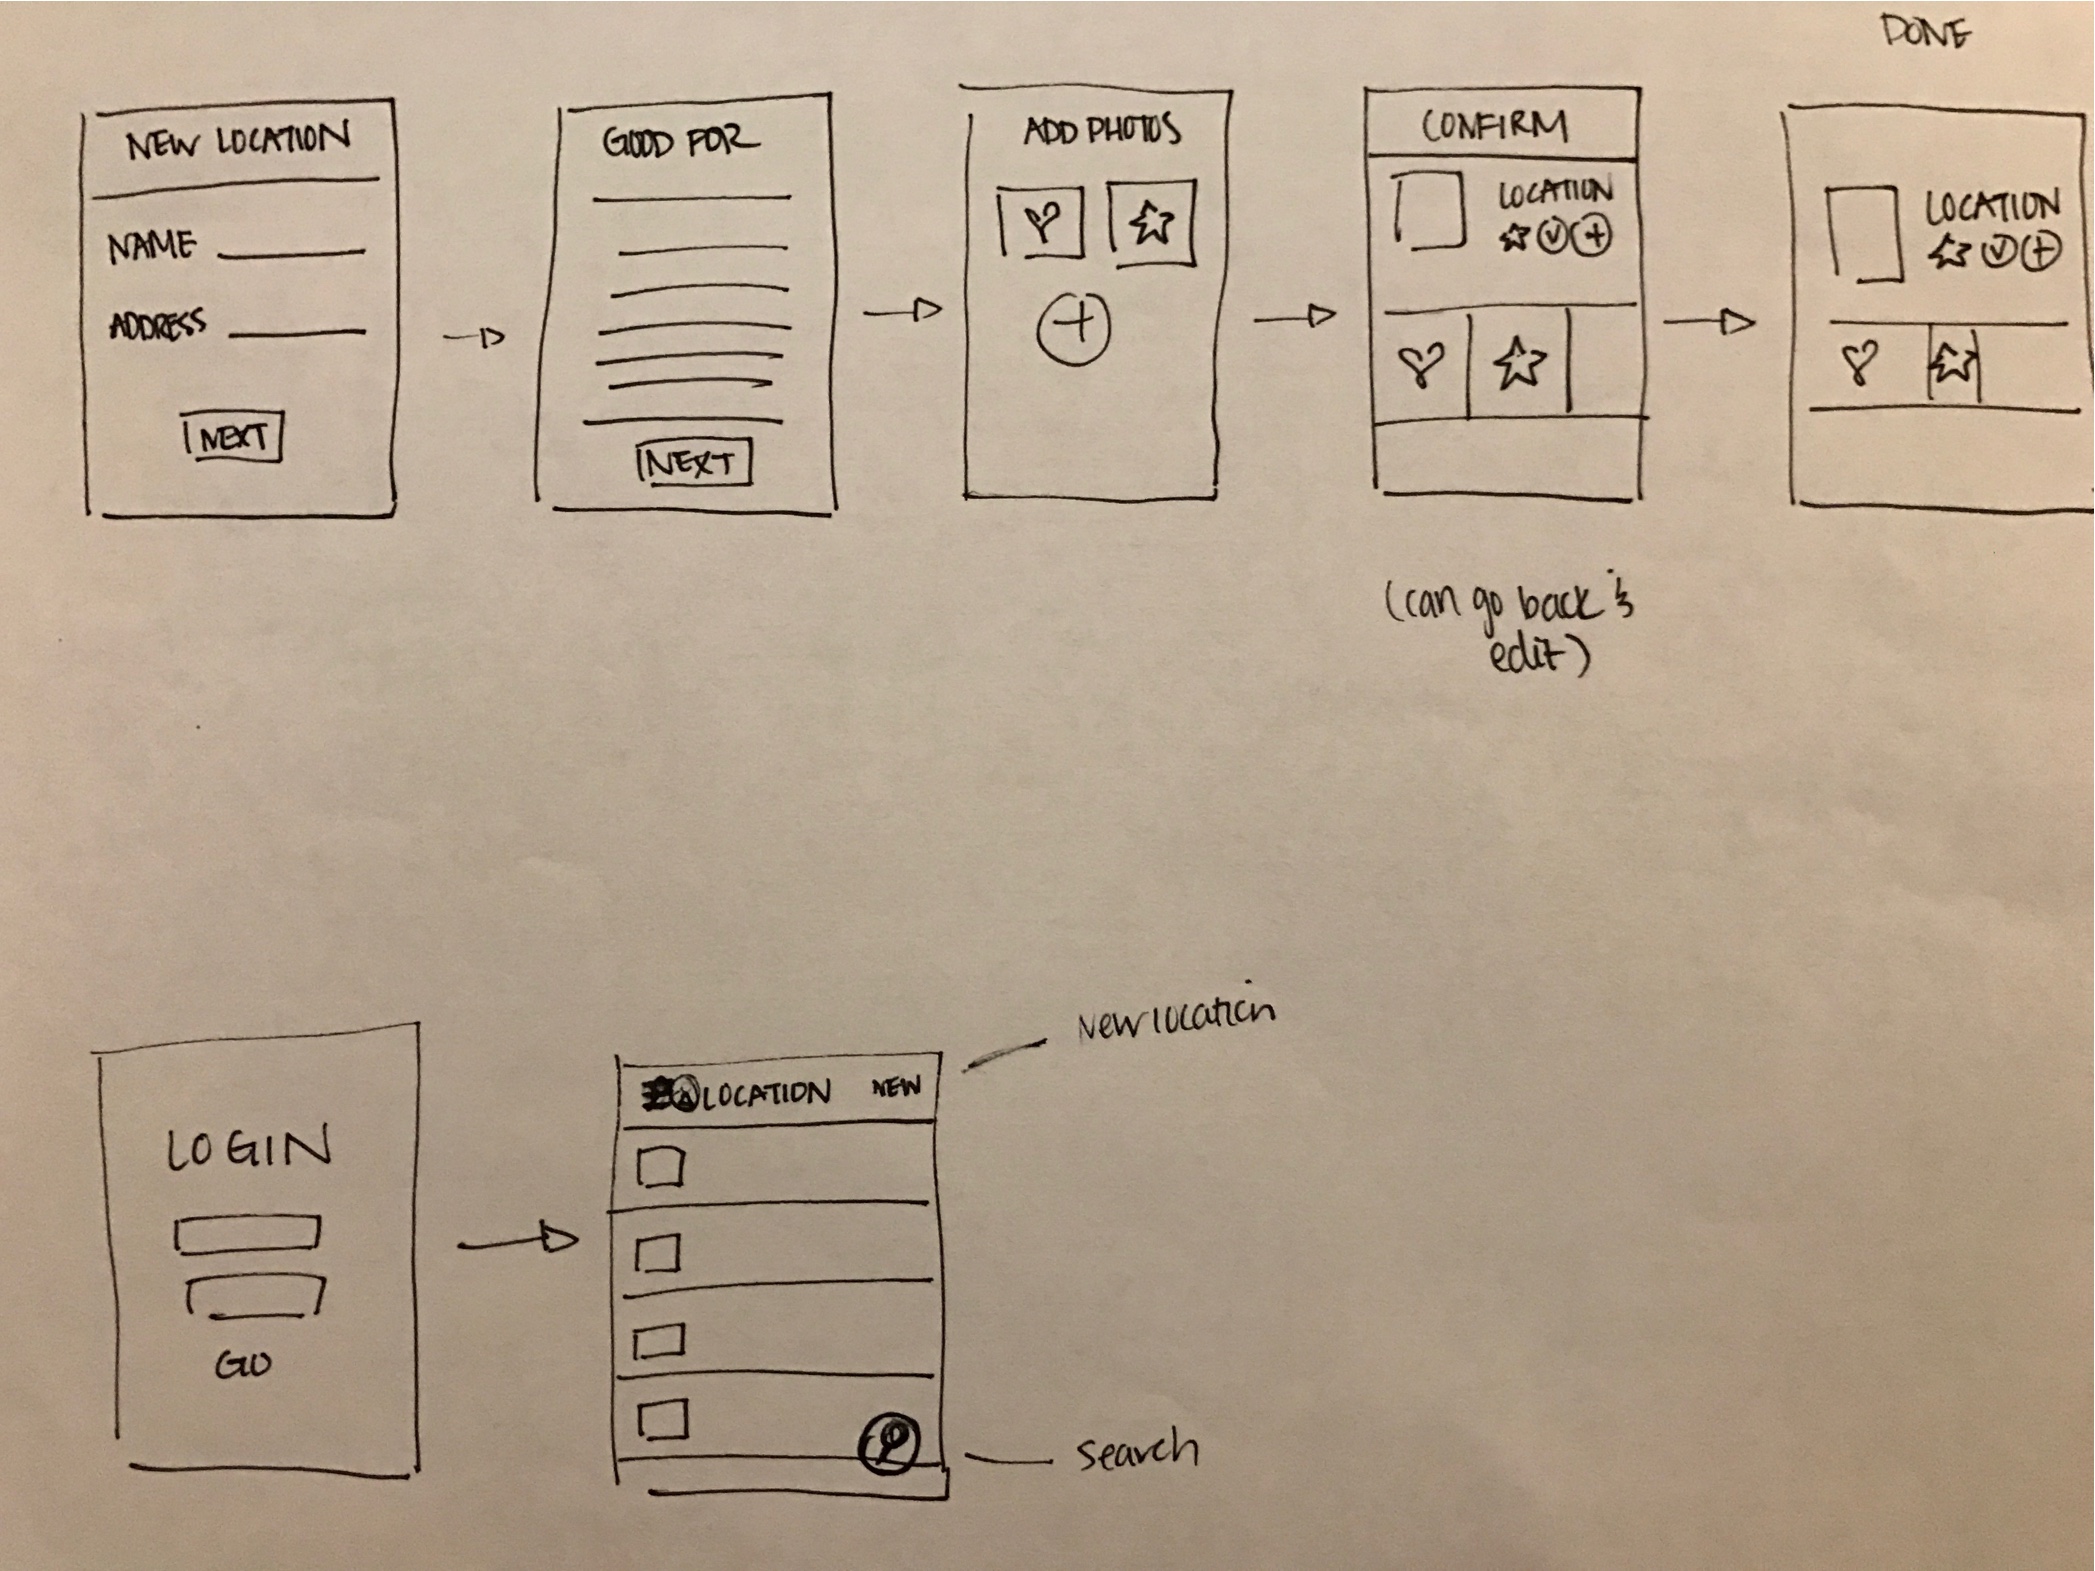 DONE
NEW LOCATION
NAME
ADDRESS
NEXT
GOOD FOR
NEXT
ADD PHOTOS
CONFIRM
LOCATION
(can go back &
edit)
LOCATION
LOGIN
GO
LOCATION NEW
New location
search